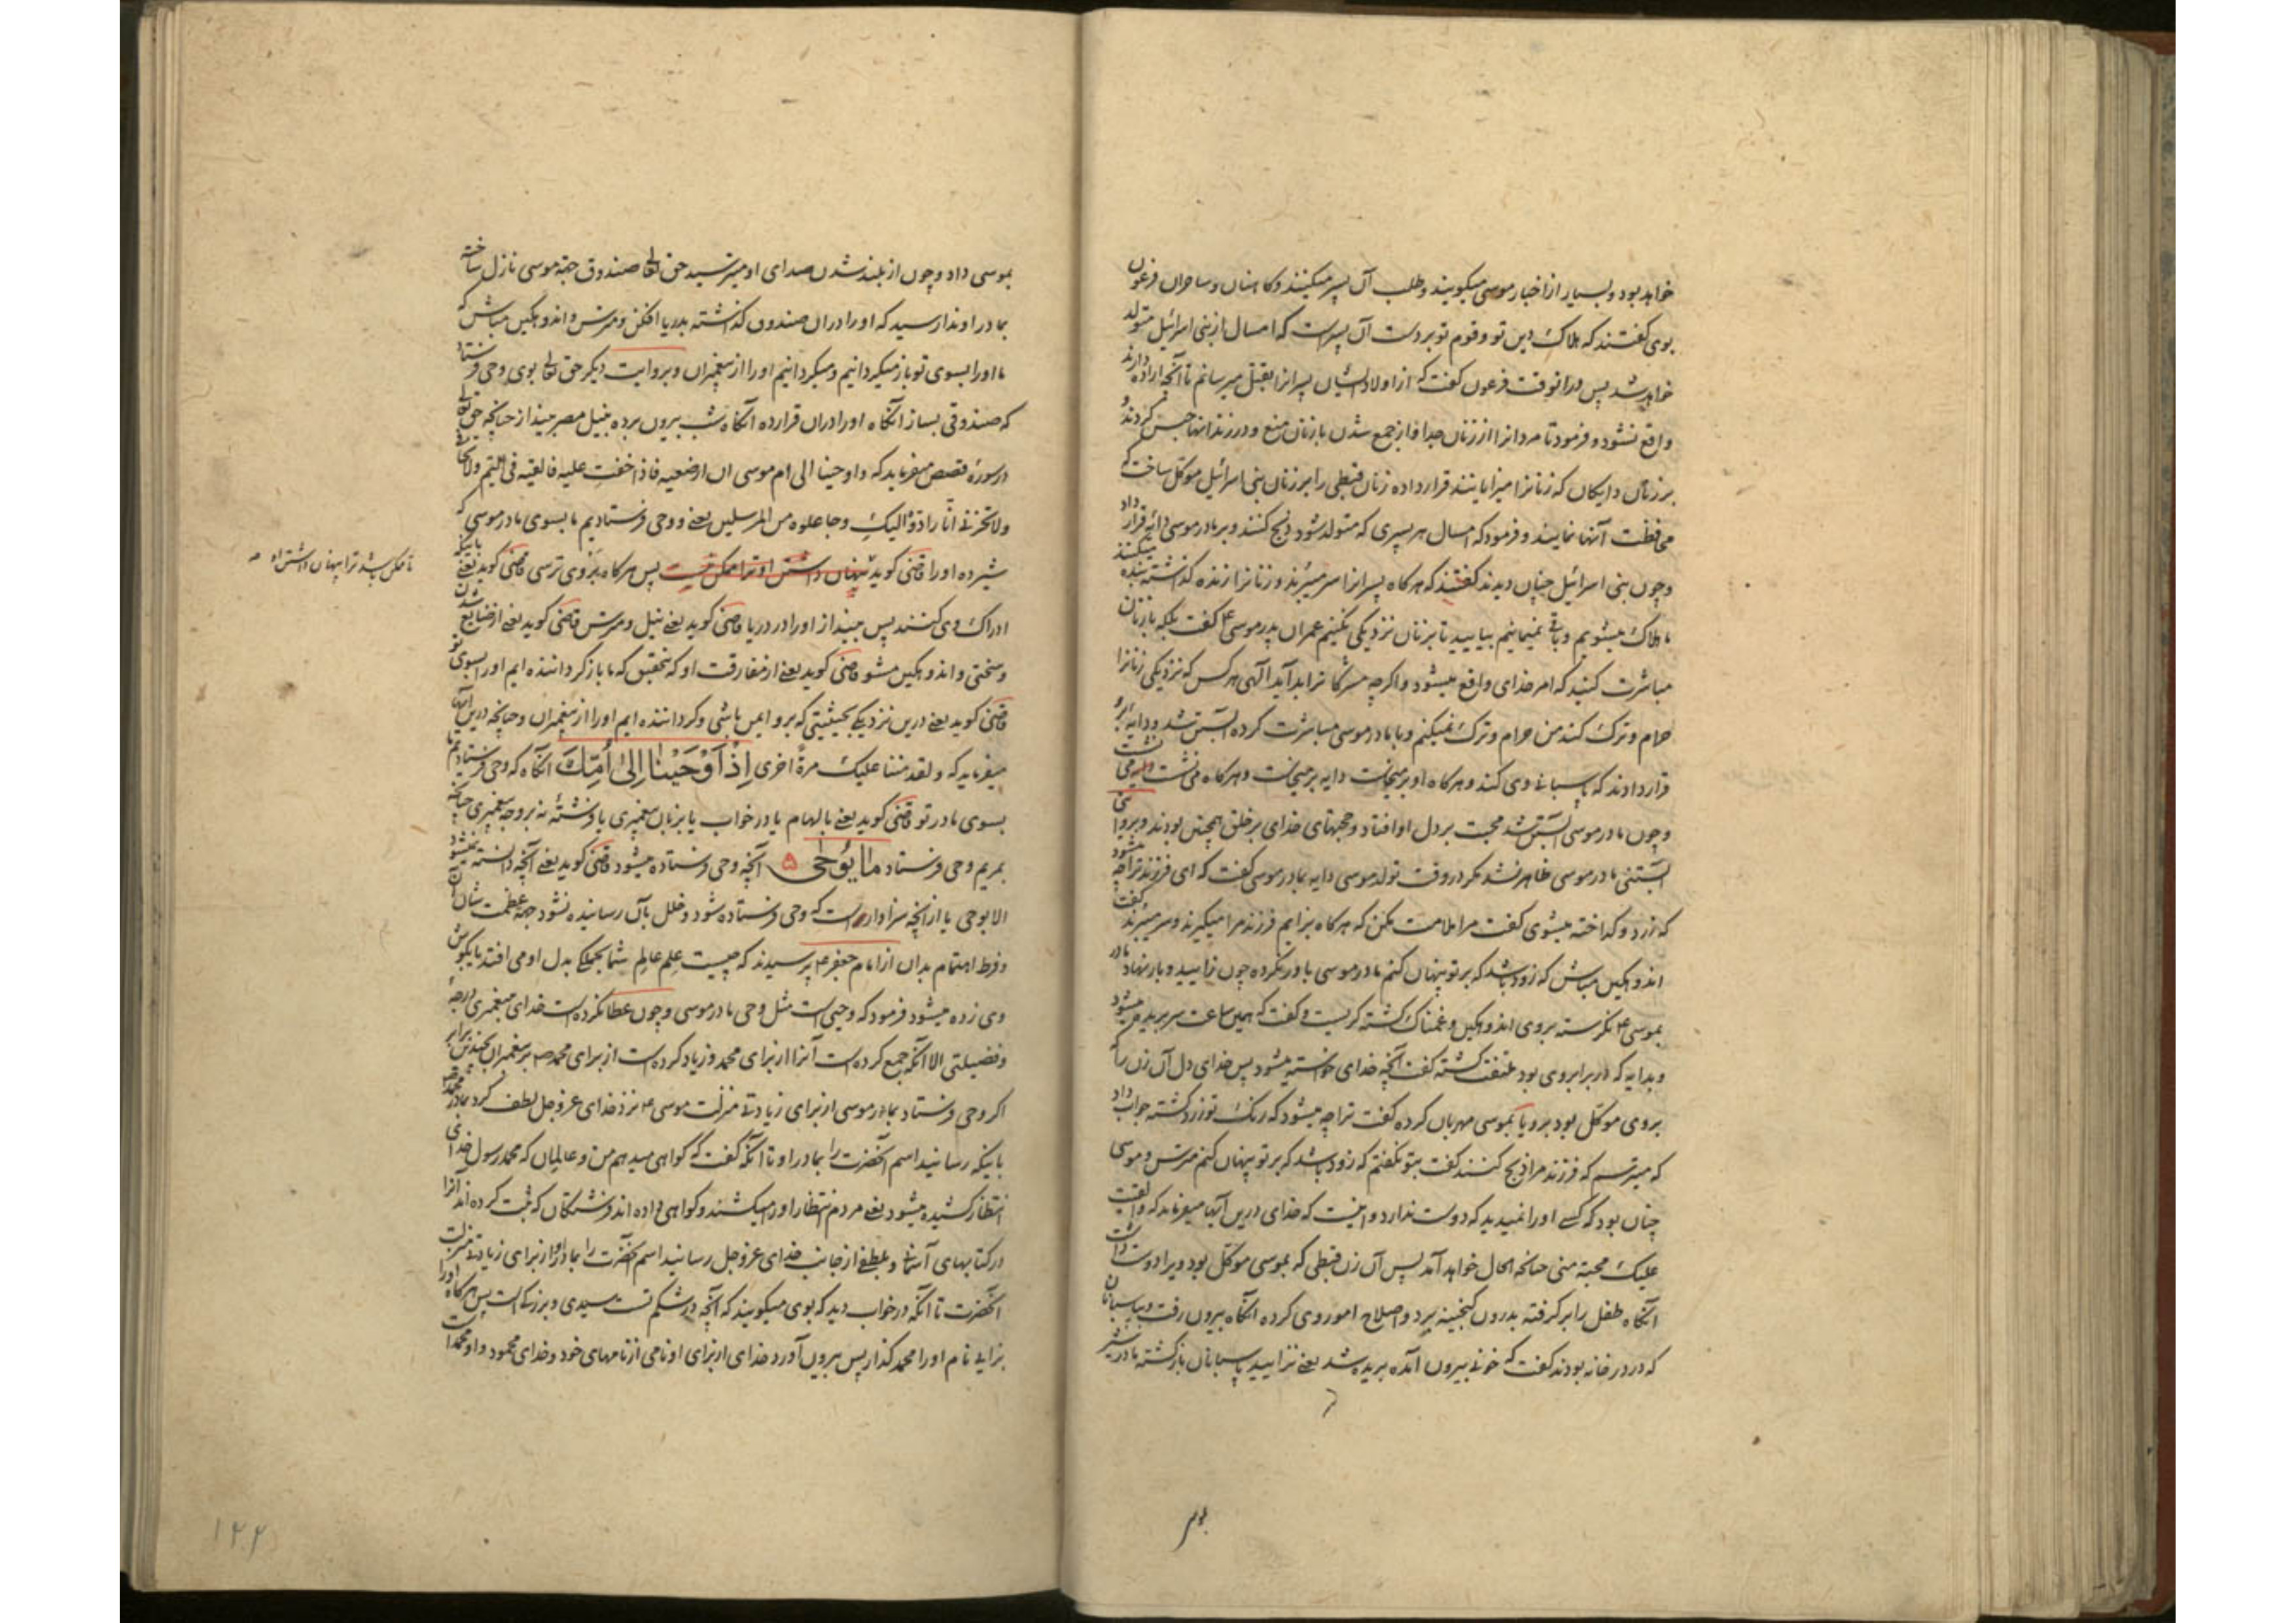 خواهد بود و بسیار از اخبار موسی میگویند و طلب آن پسر میکنند و کاهنان و ساحران فرعون
بوی گفتند که هلاک دین تو و قوم تو بر دست آن پسرست که امسال از بنی اسرائیل متولد
خواهد شد پس درانوقت فرعون گفت که از اولاد ایشان پسرانرا بقتل میرسانم تا آنچه اراده دارند
واقع نشود و فرمود تا مردانرا از زنان جدا و از جمع شدن با زنان منع و در زندانها حبس کردند و
بر زنان دایکان که زنانرا میزایانند قرار داده زنان قبطی را بر زنان بنی اسرائیل موکل ساخت که
محافظت آنها نمایند و فرمود که امسال هر پسری که متولد شود ذبح کنند و بر مادر موسی دایه قرار داد
و چون بنی اسرائیل چنان دیدند گفتند که هرکاه پسرانرا سر میبرند و زنانرا زنده گذاشته بنده میکنند
ما هلاک میشویم و باقی نمیمانیم بیایید تا بزنان نزدیکی نکنیم عمران پدر موسی ع گفت بلکه با زنان
مباشرت کنید که امر خدای واقع میشود و اگرچه مشرکانرا بد آید الهی هرکس که نزدیکی زنانرا
حرام و ترک کند من حرام و ترک نمیکنم و با مادر موسی مباشرت کرده آبستن شد و دایه بر او
قرار دادند که پاسبانی وی کند و هرکاه او برمیخاست دایه برمیخاست و هرکاه می نشست دایه می نشست
و چون مادر موسی آبستن شد محبت بر دل او افتاد و حجتهای خدای بر خلق همچنین بودند و بروایتی
آبستنی مادر موسی ظاهر نشد مگر در وقت تولد موسی دایه بمادر موسی گفت که ای فرزند ترا چه میشود
که زرد و گداخته میشوی گفت مرا ملامت مکن که هرکاه بزایم فرزند مرا میگیرند و سر میبرند گفت
اندوهگین مباش که زود باشد که بر تو پنهان کنم مادر موسی باور نکرده چون زایید و بار نهاد مادر
بموسی ع نگرسته بروی اندوهگین و غمناک گشته گریست و گفت که همین ساعت سر بریده میشود
و بدایه که در برابر وی بود ملتفت گشته گفت آنچه خدای خواسته میشود پس خدای دل آن زن را که
بر وی موکل بود بر وی یا بموسی مهربان کرده گفت ترا چه میشود که رنگ تو زرد گشته جواب داد
که میترسم که فرزند مرا ذبح کنند گفت بتو نگفتم که زود باشد که بر تو پنهان کنم مترس و موسی
چنان بود که کسی او را نمیدید که دوست ندارد و اینست که خدای درین آیها میفرماید که و القیت
علیک محبة منی چنانچه الحال خواهد آمد پس آن زن قبطی که بموسی موکل بود ویرا دوست داشت
آنکاه طفل را برگرفته بدرون گنجینه برد و اصلاح امور وی کرده آنکاه بیرون رفت و بپاسبانان
که در در خانه بودند گفت که خونی بیرون آمده بریده شد یعنی نزایید پاسبانان بازگشته مادر شیر
بموسی داد و چون از بلند شدن صدای او میترسید حق تعالی صندوق جهة موسی نازل ساخته
بمادر او ندا رسید که او را در آن صندوق گذاشته بدریا افکن و مترس و اندوهگین مباش که
ما او را بسوی تو باز میگردانیم و میگردانیم او را از پیغمبران و بروایت دیگر حق تعالی بوی وحی فرستاد
که صندوقی بساز آنکاه او را دران قرار ده آنکاه شب بیرون برده بنیل مصر بینداز چنانچه حق تعالی
در سوره قصص میفرماید که و اوحینا الی ام موسی ان ارضعیه فاذا خفت علیه فالقیه فی الیم ولا تخافی
ولا تحزنی انا رادوه الیک و جاعلوه من المرسلین یعنی و وحی فرستادیم ما بسوی مادر موسی که
شیر ده او را قاضی گوید پنهان داشتن او ترا ممکن نیست پس هرکاه بر وی ترسی قاضی گوید یعنی باینکه
تا ممکن باشد ترا پنهان داشتن او صح
ادراک وی کنند پس بینداز او را در دریا قاضی گوید یعنی نیل و مترس قاضی گوید یعنی از ضایع شدن
و سختی و اندوهگین مشو قاضی گوید یعنی از مفارقت او که بتحقیق که ما بازگرداننده ایم او را بسوی تو
قاضی گوید یعنی درین نزدیکی بحیثیتی که برو ایمن باشی و گرداننده ایم او را از پیغمبران و چنانچه درین آیها
میفرماید که و لقد مننا علیک مرة اخری اِذْ اَوْحَیْنَا اِلٰی اُمِّکَ آنکاه که وحی فرستادیم ما
بسوی مادر تو قاضی گوید یعنی بالهام یا در خواب یا بزبان پیغمبری یا فرشتهٔ نه بر وجه پیغمبری چنانچه
بمریم وحی فرستاد مَا یُوحٰی ۵ آنچه وحی فرستاده میشود قاضی گوید یعنی آنچه دانسته نمیشود
الا بوحی یا از آنچه سزاوار است که وحی فرستاده شود و خلل بآن رسانیده نشود جهة عظمت شان آن
و فرط اهتمام بدان از امام جعفر ع پرسیدند که چیست علم عالم شما بجملگی بدل او می افتد یا بگوش
وی زده میشود فرمود که وحیی است مثل وحی مادر موسی و چون عطا نکرده است خدای پیغمبری را درجهٔ
و فضیلتی الا آنکه جمع کرده است آنرا از برای محمد و زیاد کرده است از برای محمد ص بر پیغمبران بچندین برابر
اگر وحی فرستاد بمادر موسی از برای زیادتی منزلت موسی ع نزد خدای عز و جل لطف کرد بمادر محمد ص
باینکه رسانید اسم آنحضرت را بمادر او تا آنکه گفت که گواهی میدهم من و عالمیان که محمد رسول خدا
انتظار کشیده میشود یعنی مردم انتظار او میکشند و گواهی داده اند فرشتگان که ثبت کرده اند آنرا
در کتابهای آسمانی و بلطفی از جانب خدای عز و جل رسانید اسم آنحضرت را بمادر او از برای زیادتی منزلت
آنحضرت تا آنکه در خواب دید که بوی میگویند که آنچه در شکم تست سیدی و بزرگیست پس هرکاه او را
بزایی نام او را محمد گذار پس بیرون آورد خدای از برای او نامی از نامهای خود و خدای محمود و او محمد است
بموسی
۱۲۲